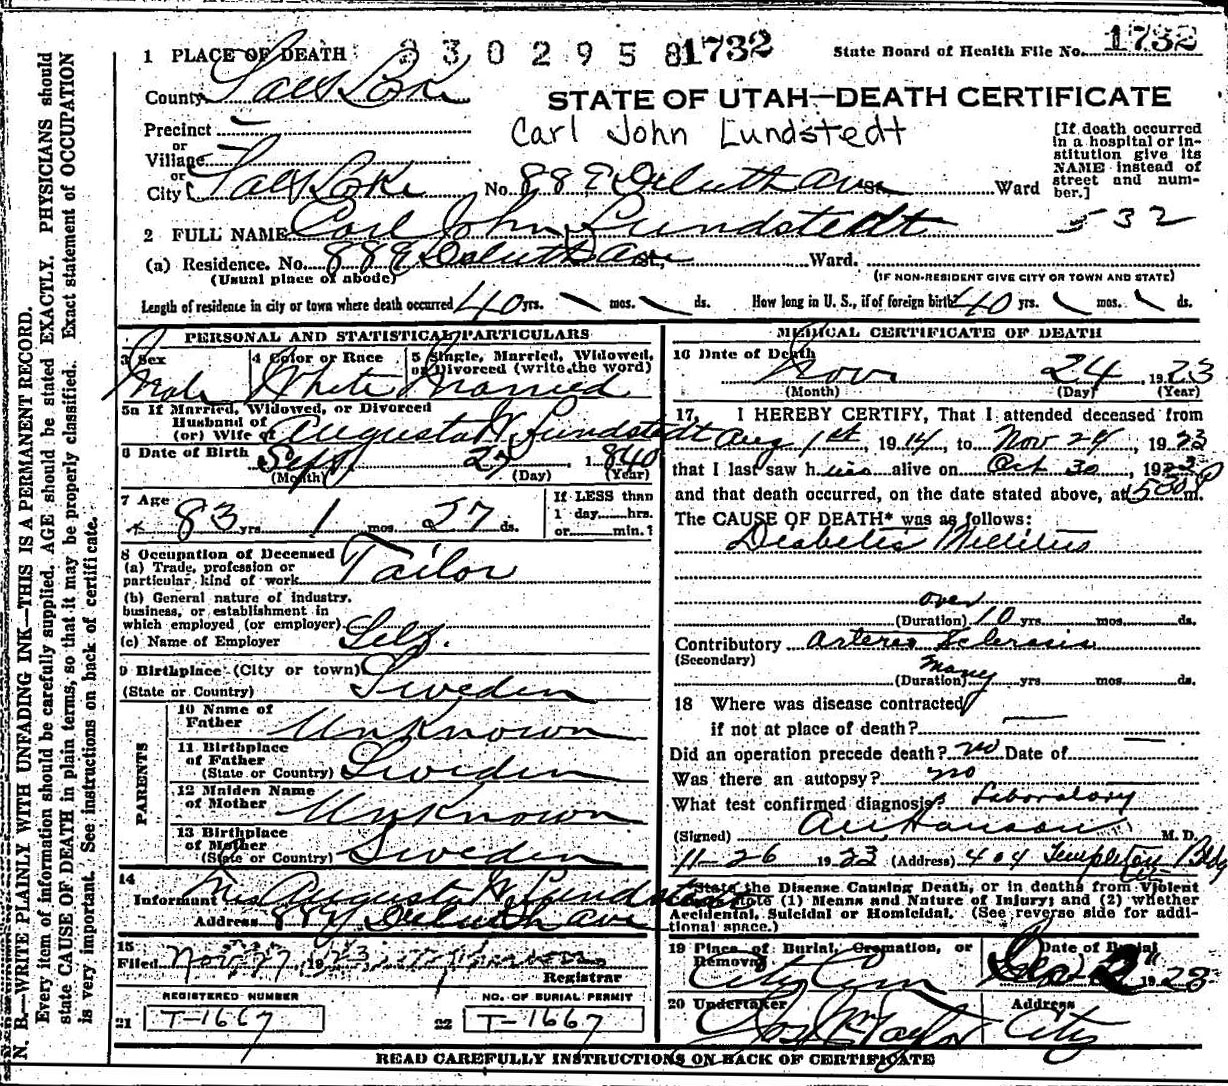 1 PLACE OF DEATH 2 3 0 2 9 5 8 1732 State Board of Health File No. 1732
County Salt Lake STATE OF UTAH—DEATH CERTIFICATE
Precinct — Carl John Lundstedt
or
Village —
or
City Salt Lake No. 889 Duluth Ave St. Ward
[If death occurred
in a hospital or in-
stitution give its
NAME instead of
street and num-
ber.]
532
2 FULL NAME Carl John Lundstedt
(a) Residence. No. 889 Duluth Ave St., Ward.
(Usual place of abode) (IF NON-RESIDENT GIVE CITY OR TOWN AND STATE)
Length of residence in city or town where death occurred 40 yrs. \ mos. \ ds. How long in U. S., if of foreign birth? 40 yrs. \ mos. \ ds.
PERSONAL AND STATISTICAL PARTICULARS
3 Sex 4 Color or Race 5 Single, Married, Widowed,
or Divorced (write the word)
Male White Married
5a If Married, Widowed, or Divorced
Husband of
(or) Wife of Augusta W. Lundstedt
6 Date of Birth Sept 27, 1840
(Month) (Day) (Year)
7 Age If LESS than
1 day......hrs.
or......min.?
83 yrs 1 mos. 27 ds.
8 Occupation of Deceased
(a) Trade, profession or
particular kind of work Tailor
(b) General nature of industry,
business, or establishment in
which employed (or employer)
(c) Name of Employer Self.
9 Birthplace (City or town)
(State or Country) Sweden
PARENTS
10 Name of
Father Unknown
11 Birthplace
of Father
(State or Country) Sweden
12 Maiden Name
of Mother Unknown
13 Birthplace
of Mother
(State or Country) Sweden
14
Informant Mrs Augusta W Lundstedt
Address 889 Duluth Ave
15
Filed Nov, 27, 1923
Registrar
REGISTERED NUMBER NO. OF BURIAL PERMIT
21 T-1667 22 T-1667
MEDICAL CERTIFICATE OF DEATH
16 Date of Death
Nov 24, 1923
(Month) (Day) (Year)
17, I HEREBY CERTIFY, That I attended deceased from
Aug 1st, 1914, to Nov 24, 1923
that I last saw him alive on Oct 30, 1923
and that death occurred, on the date stated above, at 530 P m.
The CAUSE OF DEATH* was as follows:
Diabetis Millitus
over
(Duration) 10 yrs. mos. ds.
Contributory Arterio Sclerosis
(Secondary) many
(Duration) yrs mos. ds.
18 Where was disease contracted
if not at place of death? —
Did an operation precede death? no Date of —
Was there an autopsy? no
What test confirmed diagnosis? Laboratory
(Signed) Hanson M. D.
11-26 1923 (Address) 404 Templeton Bldg
*State the Disease Causing Death, or in deaths from Violent
Causes, state (1) Means and Nature of Injury; and (2) whether
Accidental, Suicidal or Homicidal. (See reverse side for addi-
tional space.)
19 Place of Burial, Cremation, or Date of Burial
Removal
City Cem 2 1923
20 Undertaker Address
Jos Wm Taylor City
READ CAREFULLY INSTRUCTIONS ON BACK OF CERTIFICATE
N. B.—WRITE PLAINLY WITH UNFADING INK—THIS IS A PERMANENT RECORD.
Every item of information should be carefully supplied. AGE should be stated EXACTLY. PHYSICIANS should
state CAUSE OF DEATH in plain terms, so that it may be properly classified. Exact statement of OCCUPATION
is very important. See instructions on back of certificate.